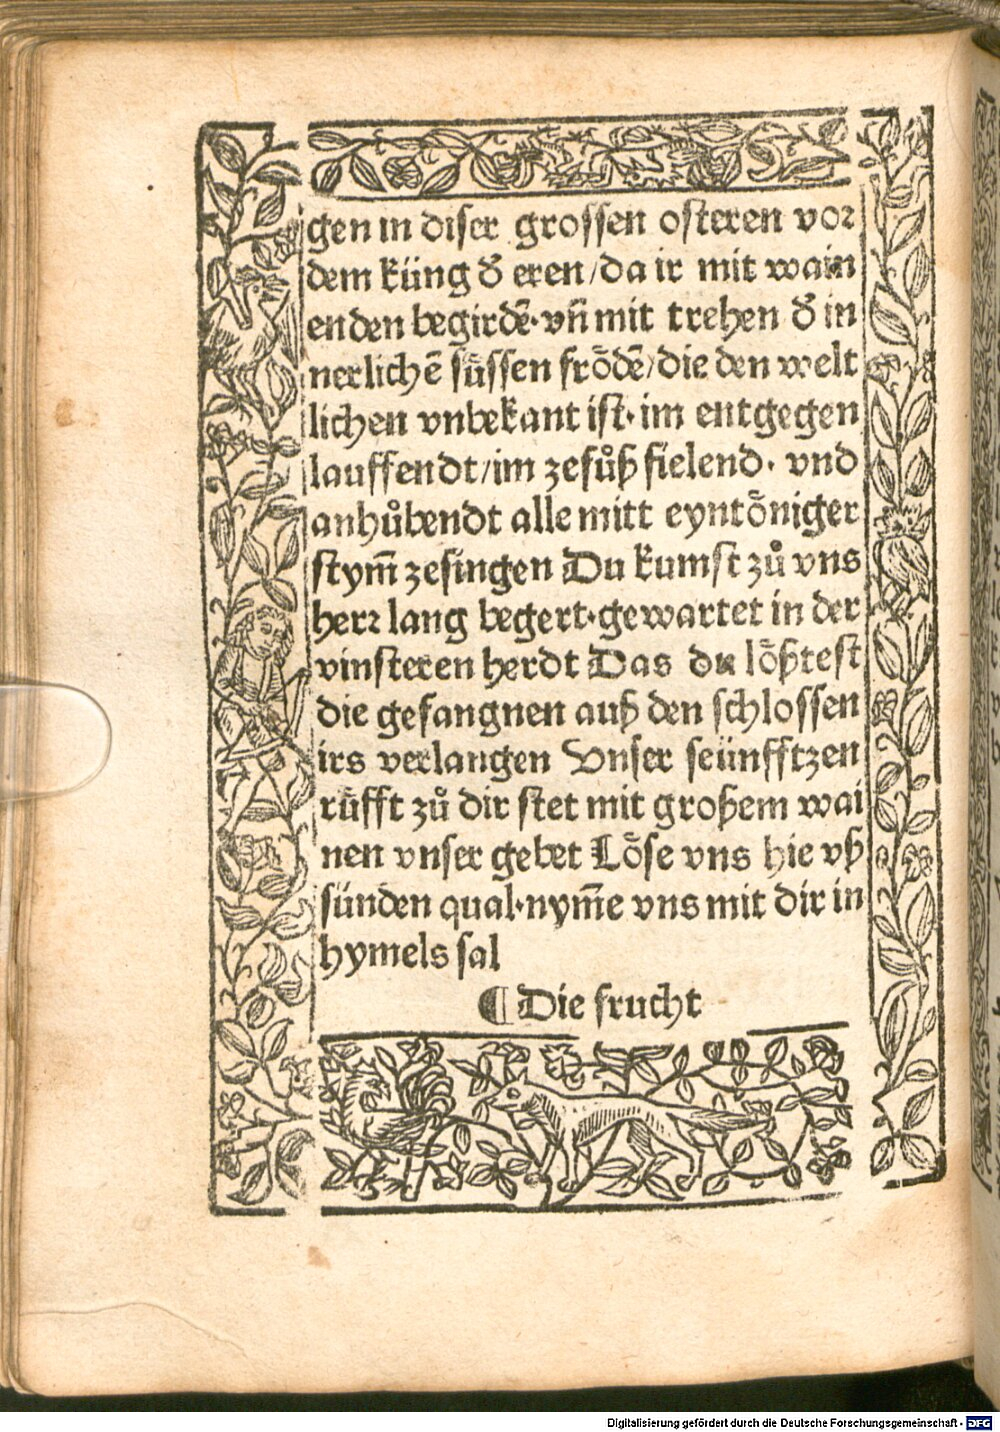 gen in diser grossen osteren vor
dem küng d̕ eren/da ir mit wain
enden begirdē·vn̄ mit trehen d̕ in
nerlichē sůssen frȏdē/die den welt
lichen vnbekant ist·im entgegen
lauffendt/im zefůß fielend· vnd
anhůbendt alle mitt eyntȏniger
stym̄ zesingen Du kumst zů vns
herr lang begert·gewartet in der
vinsteren herdt Das du lȏßtest
die gefangnen auß den schlossen
irs verlangen Vnser seünfftzen
růfft zů dir stet mit großem wai
nen vnser gebet Lȏse vns hie vß
sünden qual·nym̄e vns mit dir in
hymels sal
¶ Die frucht
Digitalisierung gefördert durch die Deutsche Forschungsgemeinschaft - DFG